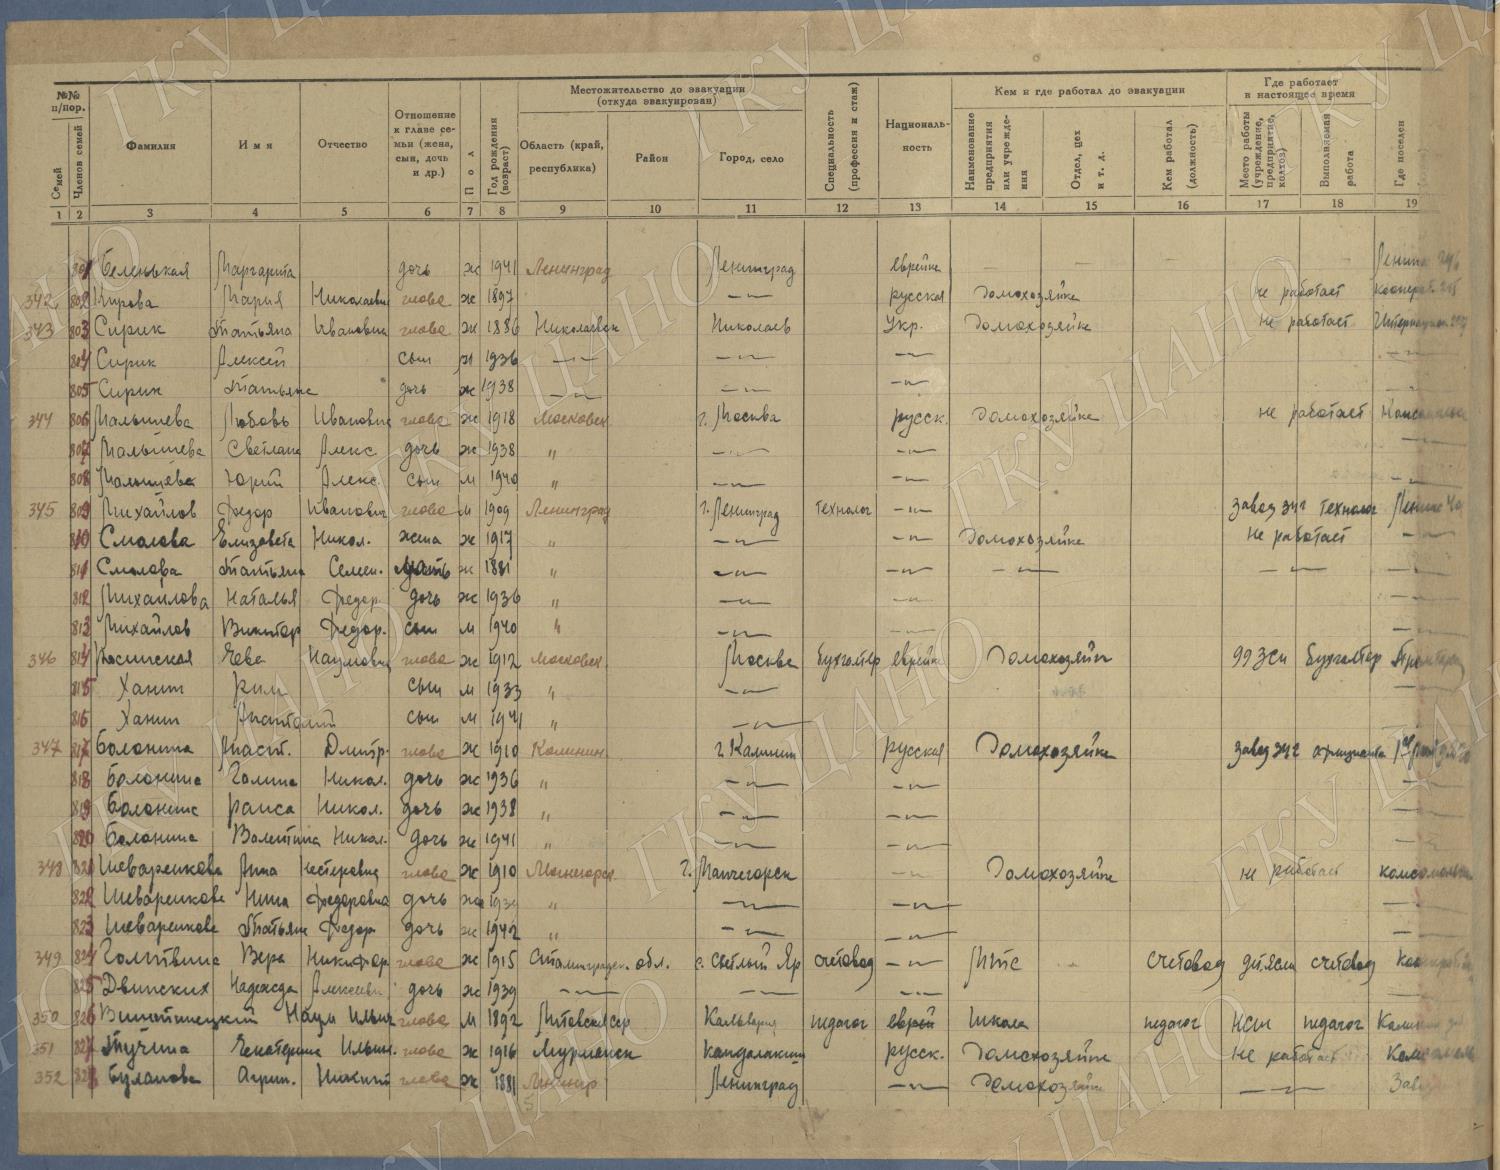 №№ п/пор.
Семей
Членов семей
Фамилия
Имя
Отчество
Отношение к главе семьи (жена, сын, дочь и др.)
Пол
Год рождения (возраст)
Местожительство до эвакуации (откуда эвакуирован)
Область (край, республика)
Район
Город, село
Специальность (профессия и стаж)
Националь-ность
Кем и где работал до эвакуации
Наименование предприятия или учрежде-ния
Отдел, цех и т. д.
Кем работал (должность)
Где работает в настоящее время
Место работы (учреждение, предприятие, колхоз)
Выполняемая работа
Где поселен
1 2 3 4 5 6 7 8 9 10 11 12 13 14 15 16 17 18 19
801 Беленькая Маргарита дочь ж 1941 Ленинград Ленинград еврейка — — — Ленина
342 802 Кирова Мария Николаевн глава ж 1897 —〃— русская Домохозяйка не работает
343 803 Сирик Татьяна Ивановна глава ж 1886 Николаевск Николаев Укр. Домохозяйка не работает
804 Сирик Алексей сын м 1936 —〃— —〃— —〃— —〃—
805 Сирик Татьяна дочь ж 1938 —〃— —〃— —〃—
344 806 Малышева Любовь Ивановна глава ж 1918 Московск. г. Москва русск. Домохозяйка не работает
807 Малышева Светлана Алекс. дочь ж 1938 〃 —〃— —〃—
808 Малышева Юрий Алекс. сын м 1940 〃 —〃— —〃— —〃—
345 809 Михайлов Федор Иванович глава м 1909 Ленинград г. Ленинград технолог —〃— завод технолог
810 Смолова Елизавета Никол. жена ж 1917 〃 —〃— —〃— Домохозяйка не работает —〃—
811 Смолова Татьяна Семен. мать ж 1881 〃 —〃— —〃— —〃— —〃—
812 Михайлова Наталья Федор. дочь ж 1936 〃 —〃— —〃— —〃—
813 Михайлов Виктор Федор. сын м 1940 〃 —〃— —〃— —〃—
346 814 Росинская Ева Наумовн глава ж 1912 Московск. Москва бухгалтер еврейка Домохозяйка 99 ЗСП бухгалтер
815 Ханин Рим сын м 1933 〃 —〃—
816 Ханин Анатолий сын м 1941 〃 —〃—
347 817 Болонина Анаст. Дмитр. глава ж 1910 Калинин. г. Калинин русская Домохозяйка завод
818 Болонина Галина Никол. дочь ж 1936 〃 —〃— —〃—
819 Болонина Раиса Никол. дочь ж 1938 〃 —〃— —〃—
820 Болонина Валентина Никол. дочь ж 1941 〃 —〃— —〃—
348 821 Шеваренкова Анна Нестеровна глава ж 1910 г. Мончегорск —〃— Домохозяйка не работает
822 Шеваренкова Нина Федоровна дочь ж 〃 —〃— —〃—
823 Шеваренкова Татьяна Федор дочь ж 1942 〃 —〃— —〃—
349 824 Голитвина Вера Никифор глава ж 1915 Сталинградск. обл. с. Светлый Яр счетовод —〃— МТС счетовод детясли счетовод
825 Двинских Надежда Алексеевн дочь ж 1939 —〃— —〃— —〃—
350 826 Винтницкий Наум Ильич глава м 1892 Литовская сср Кальвария педагог еврей школа педагог НСШ педагог
351 827 Тучина Екатерина Ильин. глава ж 1916 Мурманск Кандалакши русск. Домохозяйка не работает
352 828 Буланова Агрип. глава ж 1881 Ленингр Ленинград —〃— Домохозяйка —〃—
ГКУ ЦАНО